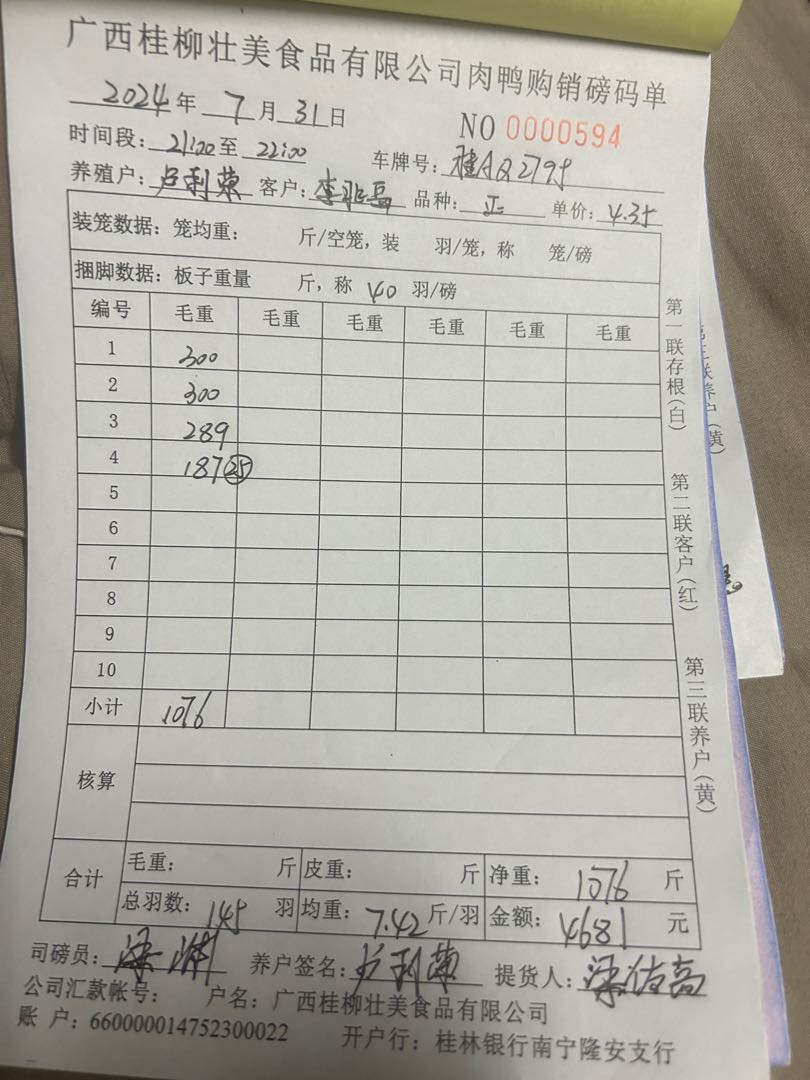 广西桂柳壮美食品有限公司肉鸭购销磅码单
2024年 7月31日
NO 0000594
时间段: 21:00至 22:00 车牌号: 桂AQ279
养殖户: 卢利荣 客户: 品种: 正 单价: 4.35
装笼数据: 笼均重: 斤/空笼, 装 羽/笼, 称 笼/磅
捆脚数据: 板子重量 斤, 称 40 羽/磅
编号 毛重 毛重 毛重 毛重 毛重 毛重
1 300
2 300
3 289
4 187 25
5
6
7
8
9
10
小计 1076
核算
合计 毛重: 斤 皮重: 斤 净重: 1076 斤
总羽数: 145 羽 均重: 7.42 斤/羽 金额: 4681 元
司磅员: 养户签名: 卢利荣 提货人:
公司汇款帐号: 户名: 广西桂柳壮美食品有限公司
账 户: 660000014752300022 开户行: 桂林银行南宁隆安支行
第一联存根(白)
第二联客户(红)
第三联养户(黄)